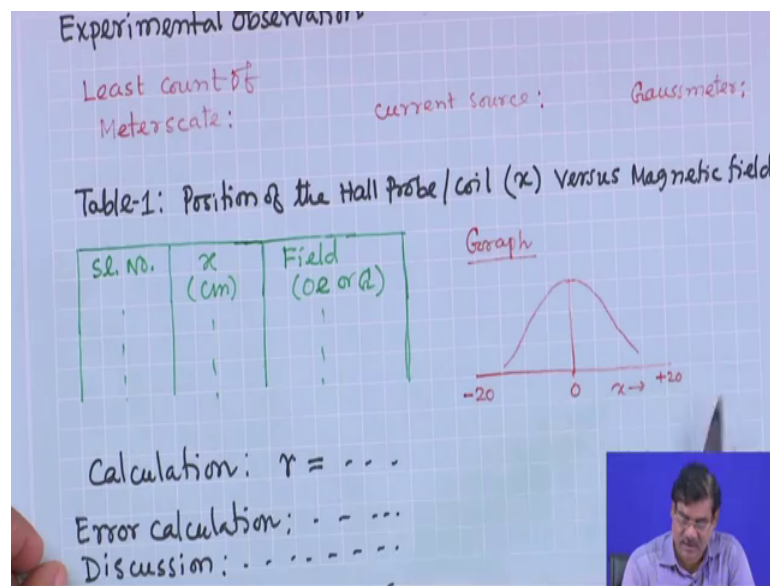 Experimental Observation
Least Count of
Meterscale:
current source:
Gaussmeter:
Table-1: Position of the Hall Probe/coil (x) Versus Magnetic field
Sl. No.
x
(cm)
Field
(Oe or G)
Graph
-20
0
x→
+20
Calculation: r = - - -
Error calculation: . - ...
Discussion: . . . . - - - .